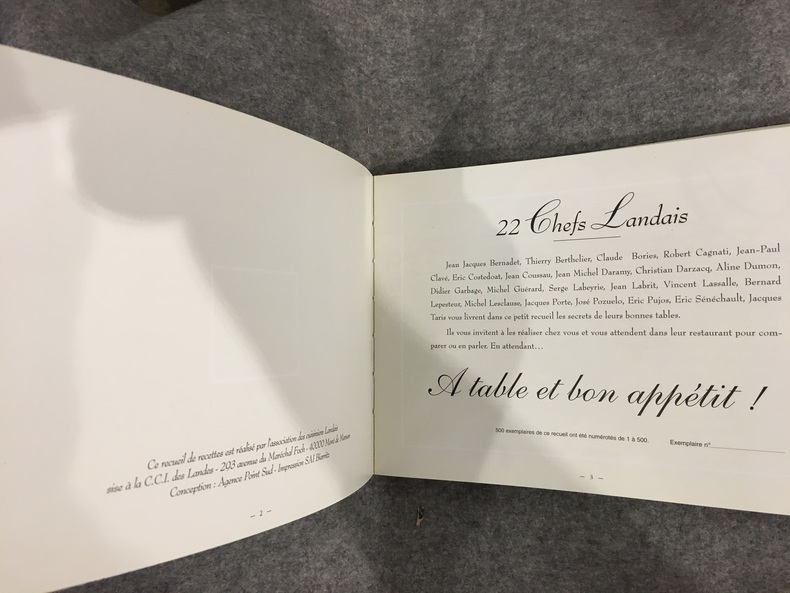 Ce recueil de recettes est réalisé par l'association des cuisiniers Landais
sise à la C.C.I. des Landes - 293 avenue du Maréchal Foch - 40000 Mont de Marsan
Conception : Agence Point Sud - Impression SAI Biarritz
– 2 –
22 Chefs Landais
Jean Jacques Bernadet, Thierry Berthelier, Claude Bories, Robert Cagnati, Jean-Paul
Clavé, Eric Costedoat, Jean Coussau, Jean Michel Daramy, Christian Darzacq, Aline Dumon,
Didier Garbage, Michel Guérard, Serge Labeyrie, Jean Labrit, Vincent Lassalle, Bernard
Lepesteur, Michel Lesclause, Jacques Porte, José Pozuelo, Eric Pujos, Eric Sénéchault, Jacques
Taris vous livrent dans ce petit recueil les secrets de leurs bonnes tables.
Ils vous invitent à les réaliser chez vous et vous attendent dans leur restaurant pour com-
parer ou en parler. En attendant...
A table et bon appétit !
500 exemplaires de ce recueil ont été numérotés de 1 à 500. Exemplaire n°
– 3 –